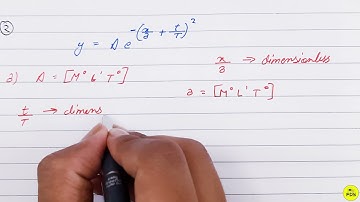 ②
y = A e^-(x/a + t/T)²
a) A = [M⁰ L¹ T⁰]
x/a → dimensionless
a = [M⁰ L¹ T⁰]
t/T → dimens